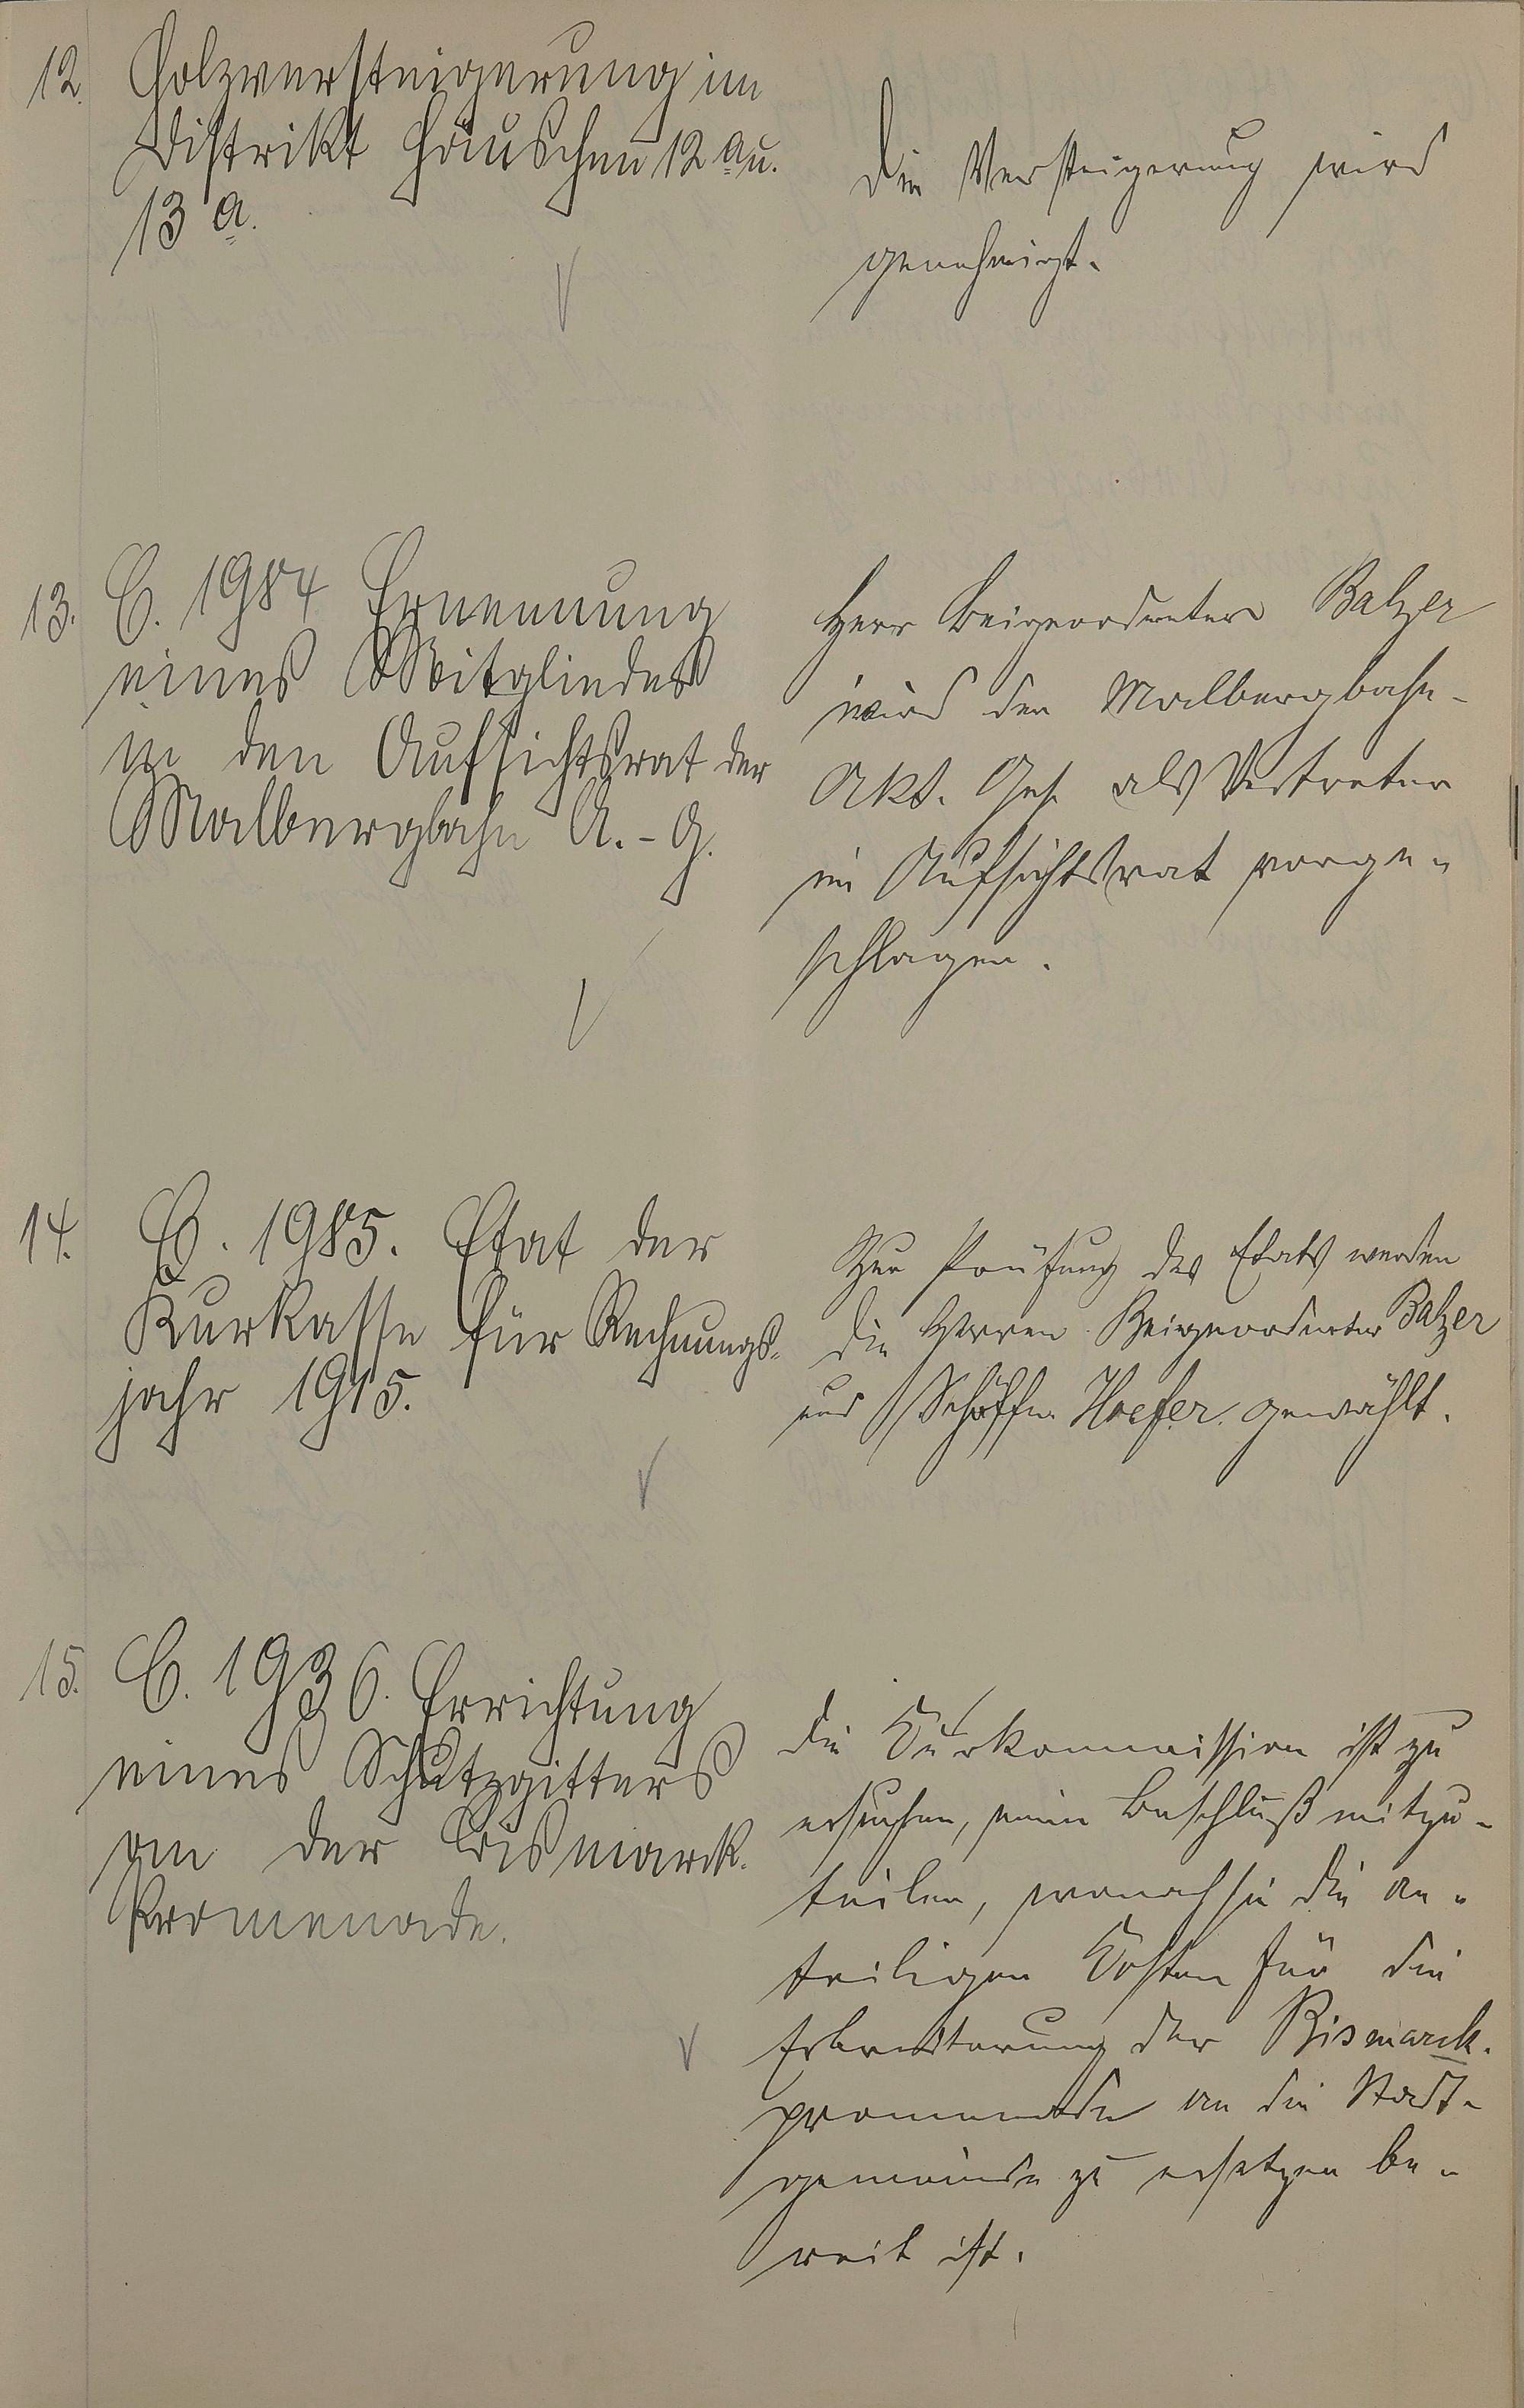 12. Holzversteigerung im
Distrikt Häuschen 12 a u.
13 a.
Die Versteigerung wird
genehmigt.
13. E. 1984 Ernennung
eines Mitgliedes
in den Aufsichtsrat der
Malbergbahn A.-G.
Herr Beigeordneter Balzer
wird der Malbergbahn-
Akt. Ges. als Vertreter
im Aufsichtsrat vorge-
schlagen.
14. E. 1985. Etat der
Kurkasse für Rechnungs-
jahr 1915.
Zur Prüfung des Etats werden
die Herren Beigeordneter Balzer
und Schöffe Hoefer gewählt.
15. E. 1936. Errichtung
eines Schutzgitters
an der Bismarck-
Promenade.
Die Kurkommission ist zu
ersuchen, einen Beschluß mitzu-
teilen, wonach sie die an-
teiligen Kosten für die
Erbreiterung der Bismarck-
promenade an die Stadt-
gemeinde zu ersetzen be-
reit ist.